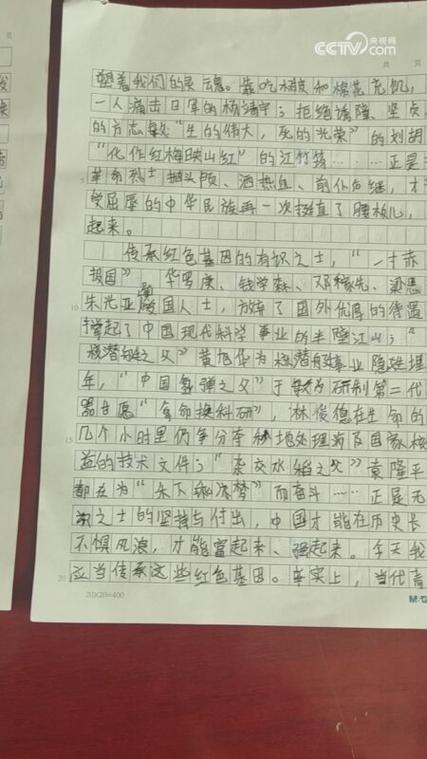 CCTV.com 央视网
塑着我们的灵魂。靠吃树皮和棉花充饥，
一人痛击日军的杨靖宇；拒绝诱降、坚贞
的方志敏"生的伟大，死的光荣"的刘胡
"化作红梅映山红"的江竹筠……正是
革命烈士抛头颅、洒热血、前仆后继，才
受屈辱的中华民族再一次挺直了腰板儿，
起来。
传承红色基因的有识之士，"一寸赤
报国"。华罗庚、钱学森、邓稼先、
朱光亚 爱国人士，放弃了国外优厚的待遇
撑起了中国现代科学事业的半壁江山；"
核潜艇之父"黄旭华为核潜艇事业隐姓埋
年，"中国氢弹之父"于敏为研制第二代
器甘愿"舍命换科研"，林俊德在生命的
几个小时里仍争分夺秒地处理 及国家核
益的技术文件；"杂交水稻之父"袁隆平
都在为"禾下乘凉梦"而奋斗……正是无
之士的坚持与付出，中国才能在历史长
不惧风浪，才能富起来、强起来。今天我
应当传承这些红色基因。事实上，当代青
5
10
15
20
20×20=400